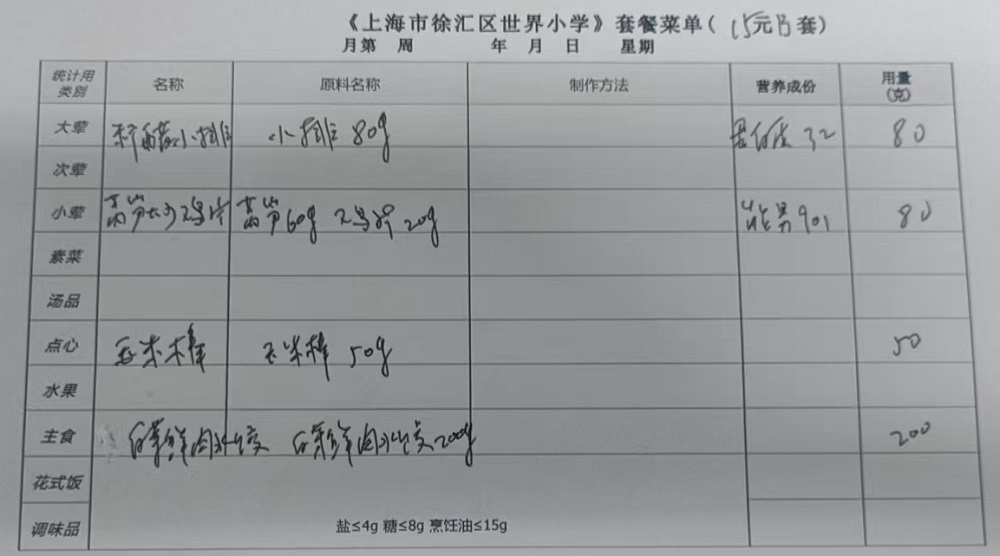 《上海市徐汇区世界小学》套餐菜单(15元B套)
月第 周 年 月 日 星期
统计用类别 名称 原料名称 制作方法 营养成份 用量(克)
大荤 糖醋小排 小排 80g 32 80
次荤
小荤 莴笋炒鸡片 莴笋60g 鸡片20g 901 80
素菜
汤品
点心 玉米棒 玉米棒 50g 50
水果
主食 白菜鲜肉水饺 白菜鲜肉水饺200g 200
花式饭
调味品 盐≤4g 糖≤8g 烹饪油≤15g